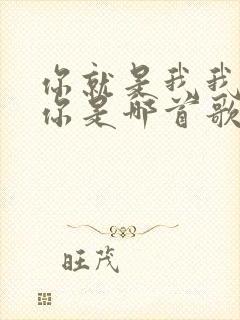 你就是我我
你是哪首歌
旺茂